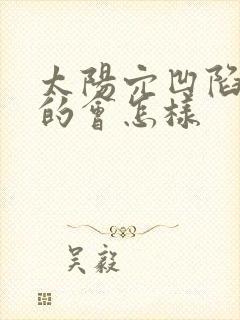 太陽穴凹陷
的會怎樣
吴毅